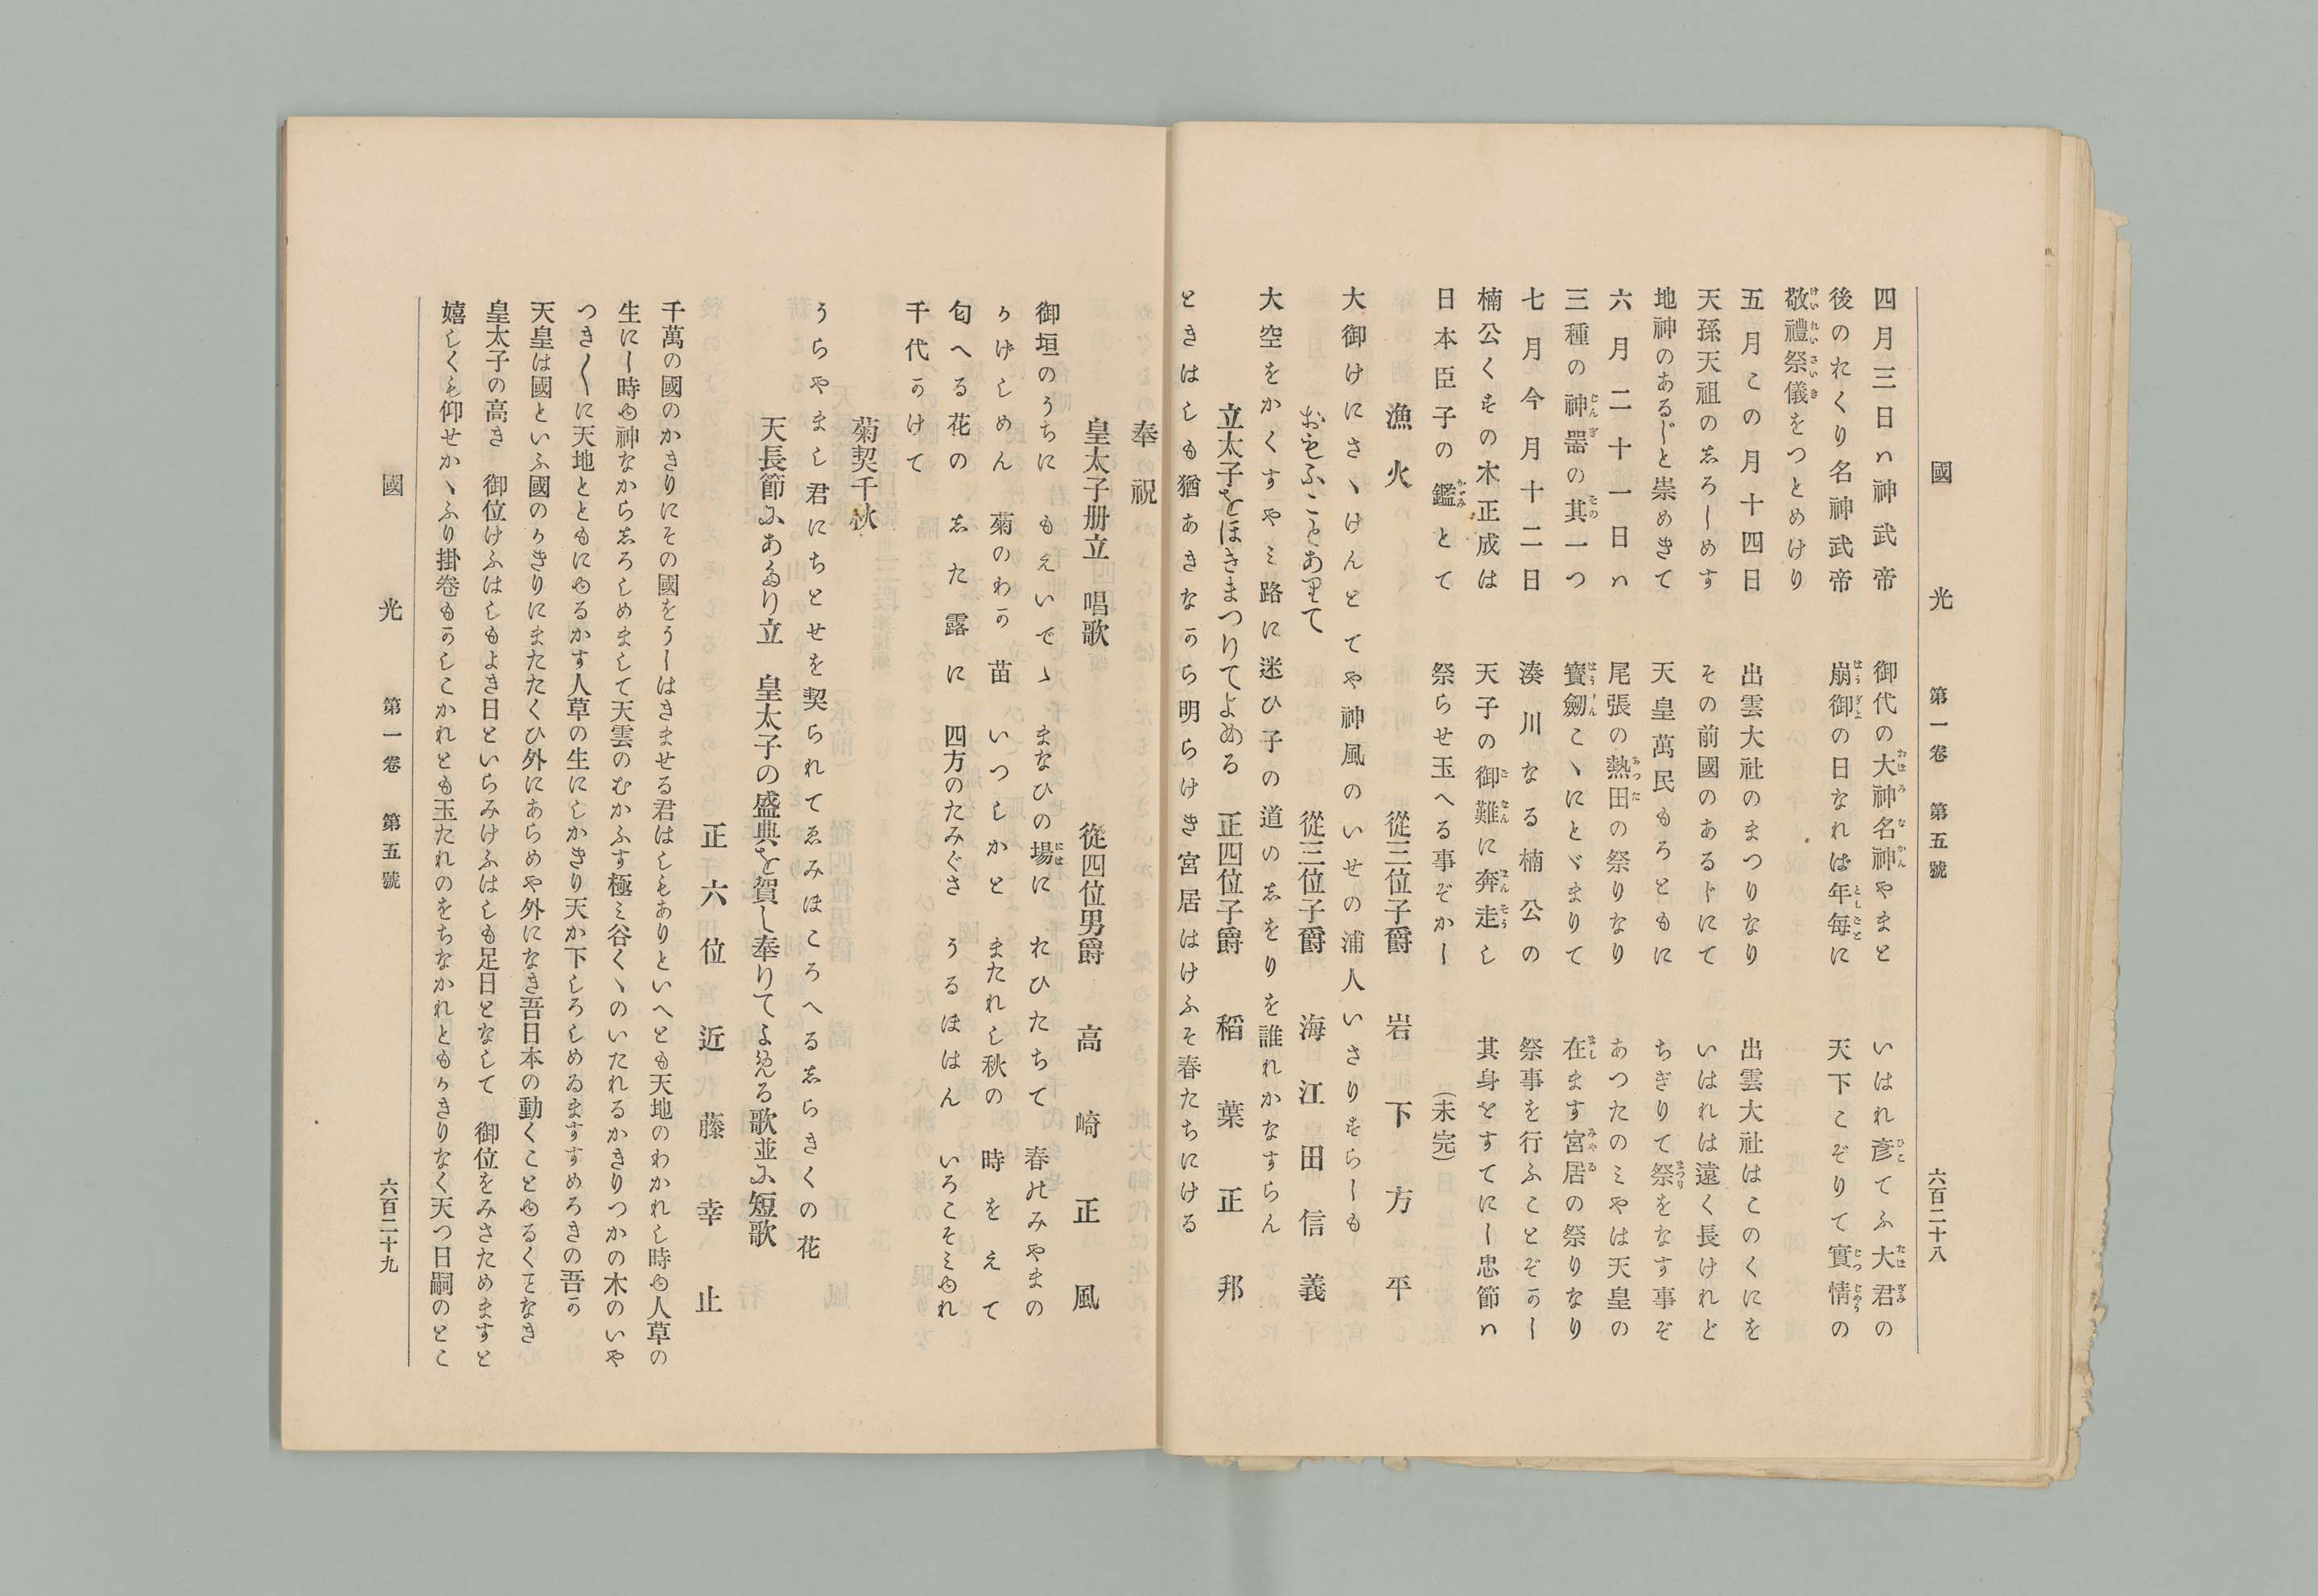 國光 第一卷 第五號 六百二十八
四月三日ハ神武帝 御代の大神名神やまと いはれ彦てふ大君の
後のれくり名神武帝 崩御の日なれば年毎に 天下こぞりて實情の
敬禮祭儀をつとめけり
五月この月十四日 出雲大社のまつりなり 出雲大社はこのくにを
天孫天祖の志ろしめす その前國のあるじにて いはれは遠く長けれど
地神のあるじと崇めきて 天皇萬民もろともに ちぎりて祭をなす事ぞ
六月二十一日ハ 尾張の熱田の祭りなり あつたのミやは天皇の
三種の神噐の其一つ 寳劔こヽにとヾまりて 在します宮居の祭りなり
七月今月十二日 湊川なる楠公の 祭事を行ふことぞかし
楠公くすの木正成は 天子の御難に奔走し 其身をすてにし忠節ハ
日本臣子の鑑とて 祭らせ玉へる事ぞかし (未完)
漁火 從三位子爵 岩下方平
大御けにさヽけんとてや神風のいせの浦人いさりすらしも
おもふことありて 從三位子爵 海江田信義
大空をかくすやミ路に迷ひ子の道の志をりを誰れかなすらん
立太子をほきまつりてよめる 正四位子爵 稻葉正邦
ときはしも猶あきなから明らけき宮居はけふそ春たちにける
奉祝
皇太子册立 唱歌 從四位男爵 高崎正風
御垣のうちに もえいでゝ まなひの場に れひたちて 春のみやまの
かげしめん 菊のわか苗 いつしかと またれし秋の 時をえて
匂へる花の 志た露に 四方のたみぐさ うるほはん いろこそミゆれ
千代かけて
菊契千秋
うらやまし君にちとせを契られてゑみほころへる志らきくの花
天長節にあたり立 皇太子の盛典を賀し奉りてよめる歌並に短歌
正六位 近藤幸止
千萬の國のかきりにその國をうしはきませる君はしもありといへとも天地のわかれし時ゆ人草の
生にし時ゆ神なから志ろしめまして天雲のむかふす極ミ谷くヽのいたれるかきりつかの木のいや
つき〱に天地とともにゆるかす人草の生にしかきり天か下しろしめゐますすめろきの吾か
天皇は國といふ國のかきりにまたたくひ外にあらめや外になき吾日本の動くことゆるくとなき
皇太子の高き 御位けふはしもよき日といらみけふはしも足日となして 御位をみさためますと
嬉しくも仰せかヽふり掛卷もかしこかれとも玉たれのをちなかれともかきりなく天つ日嗣のとこ
國光 第一卷 第五號 六百二十九